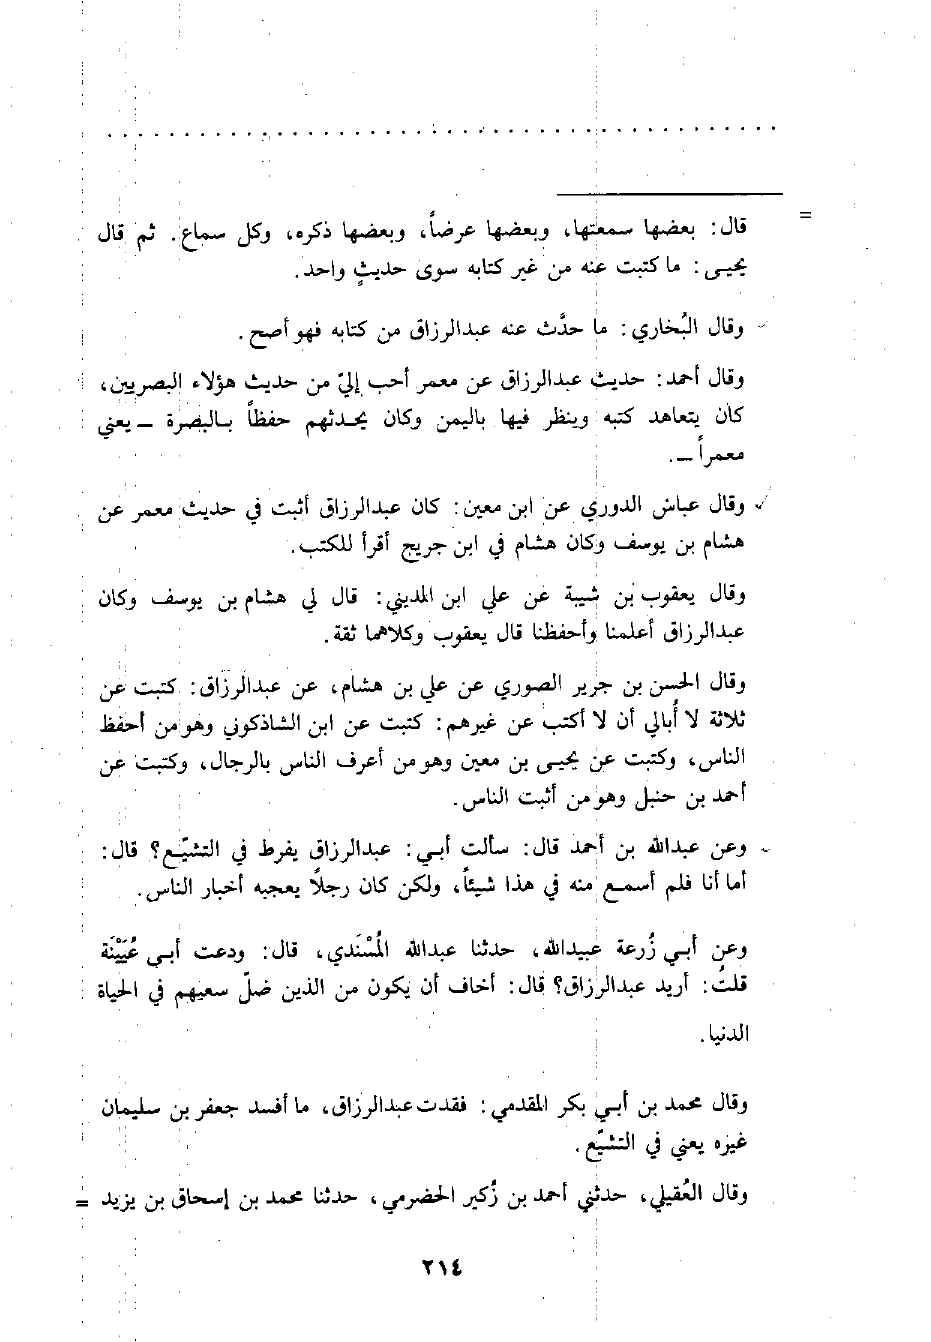 = قال: بعضها سمعتها، وبعضها عرضاً، وبعضها ذكره، وكل سماع. ثم قال
يحيى: ما كتبت عنه من غير كتابه سوى حديثٍ واحد.
وقال البُخاري: ما حدَّث عنه عبدالرزاق من كتابه فهو أصح.
وقال أحمد: حديث عبدالرزاق عن معمر أحب إليّ من حديث هؤلاء البصريين،
كان يتعاهد كتبه وينظر فيها باليمن وكان يحدثهم حفظاً بالبصرة ــ يعني
معمراً ــ.
وقال عباس الدوري عن ابن معين: كان عبدالرزاق أثبت في حديث معمر عن
هشام بن يوسف وكان هشام في ابن جريج أقرأ للكتب.
وقال يعقوب بن شيبة عن علي ابن المديني: قال لي هشام بن يوسف وكان
عبدالرزاق أعلمنا وأحفظنا قال يعقوب وكلاهما ثقة.
وقال الحسن بن جرير الصوري عن علي بن هشام، عن عبدالرزاق: كتبت عن
ثلاثة لا أُبالي أن لا أكتب عن غيرهم: كتبت عن ابن الشاذكوني وهو من أحفظ
الناس، وكتبت عن يحيى بن معين وهو من أعرف الناس بالرجال، وكتبت عن
أحمد بن حنبل وهو من أثبت الناس.
وعن عبدالله بن أحمد قال: سألت أبي: عبدالرزاق يفرط في التشيّع؟ قال:
أما أنا فلم أسمع منه في هذا شيئاً، ولكن كان رجلاً يعجبه أخبار الناس.
وعن أبي زُرعة عبيدالله، حدثنا عبدالله المُسْنَدي، قال: ودعت أبي عُيَيْنَة
قلتُ: أريد عبدالرزاق؟ قال: أخاف أن يكون من الذين ضلّ سعيهم في الحياة
الدنيا.
وقال محمد بن أبي بكر المقدمي: فقدت عبدالرزاق، ما أفسد جعفر بن سليمان
غيره يعني في التشيّع.
وقال العُقيلي، حدثني أحمد بن زُكير الحضرمي، حدثنا محمد بن إسحاق بن يزيد =
٢١٤